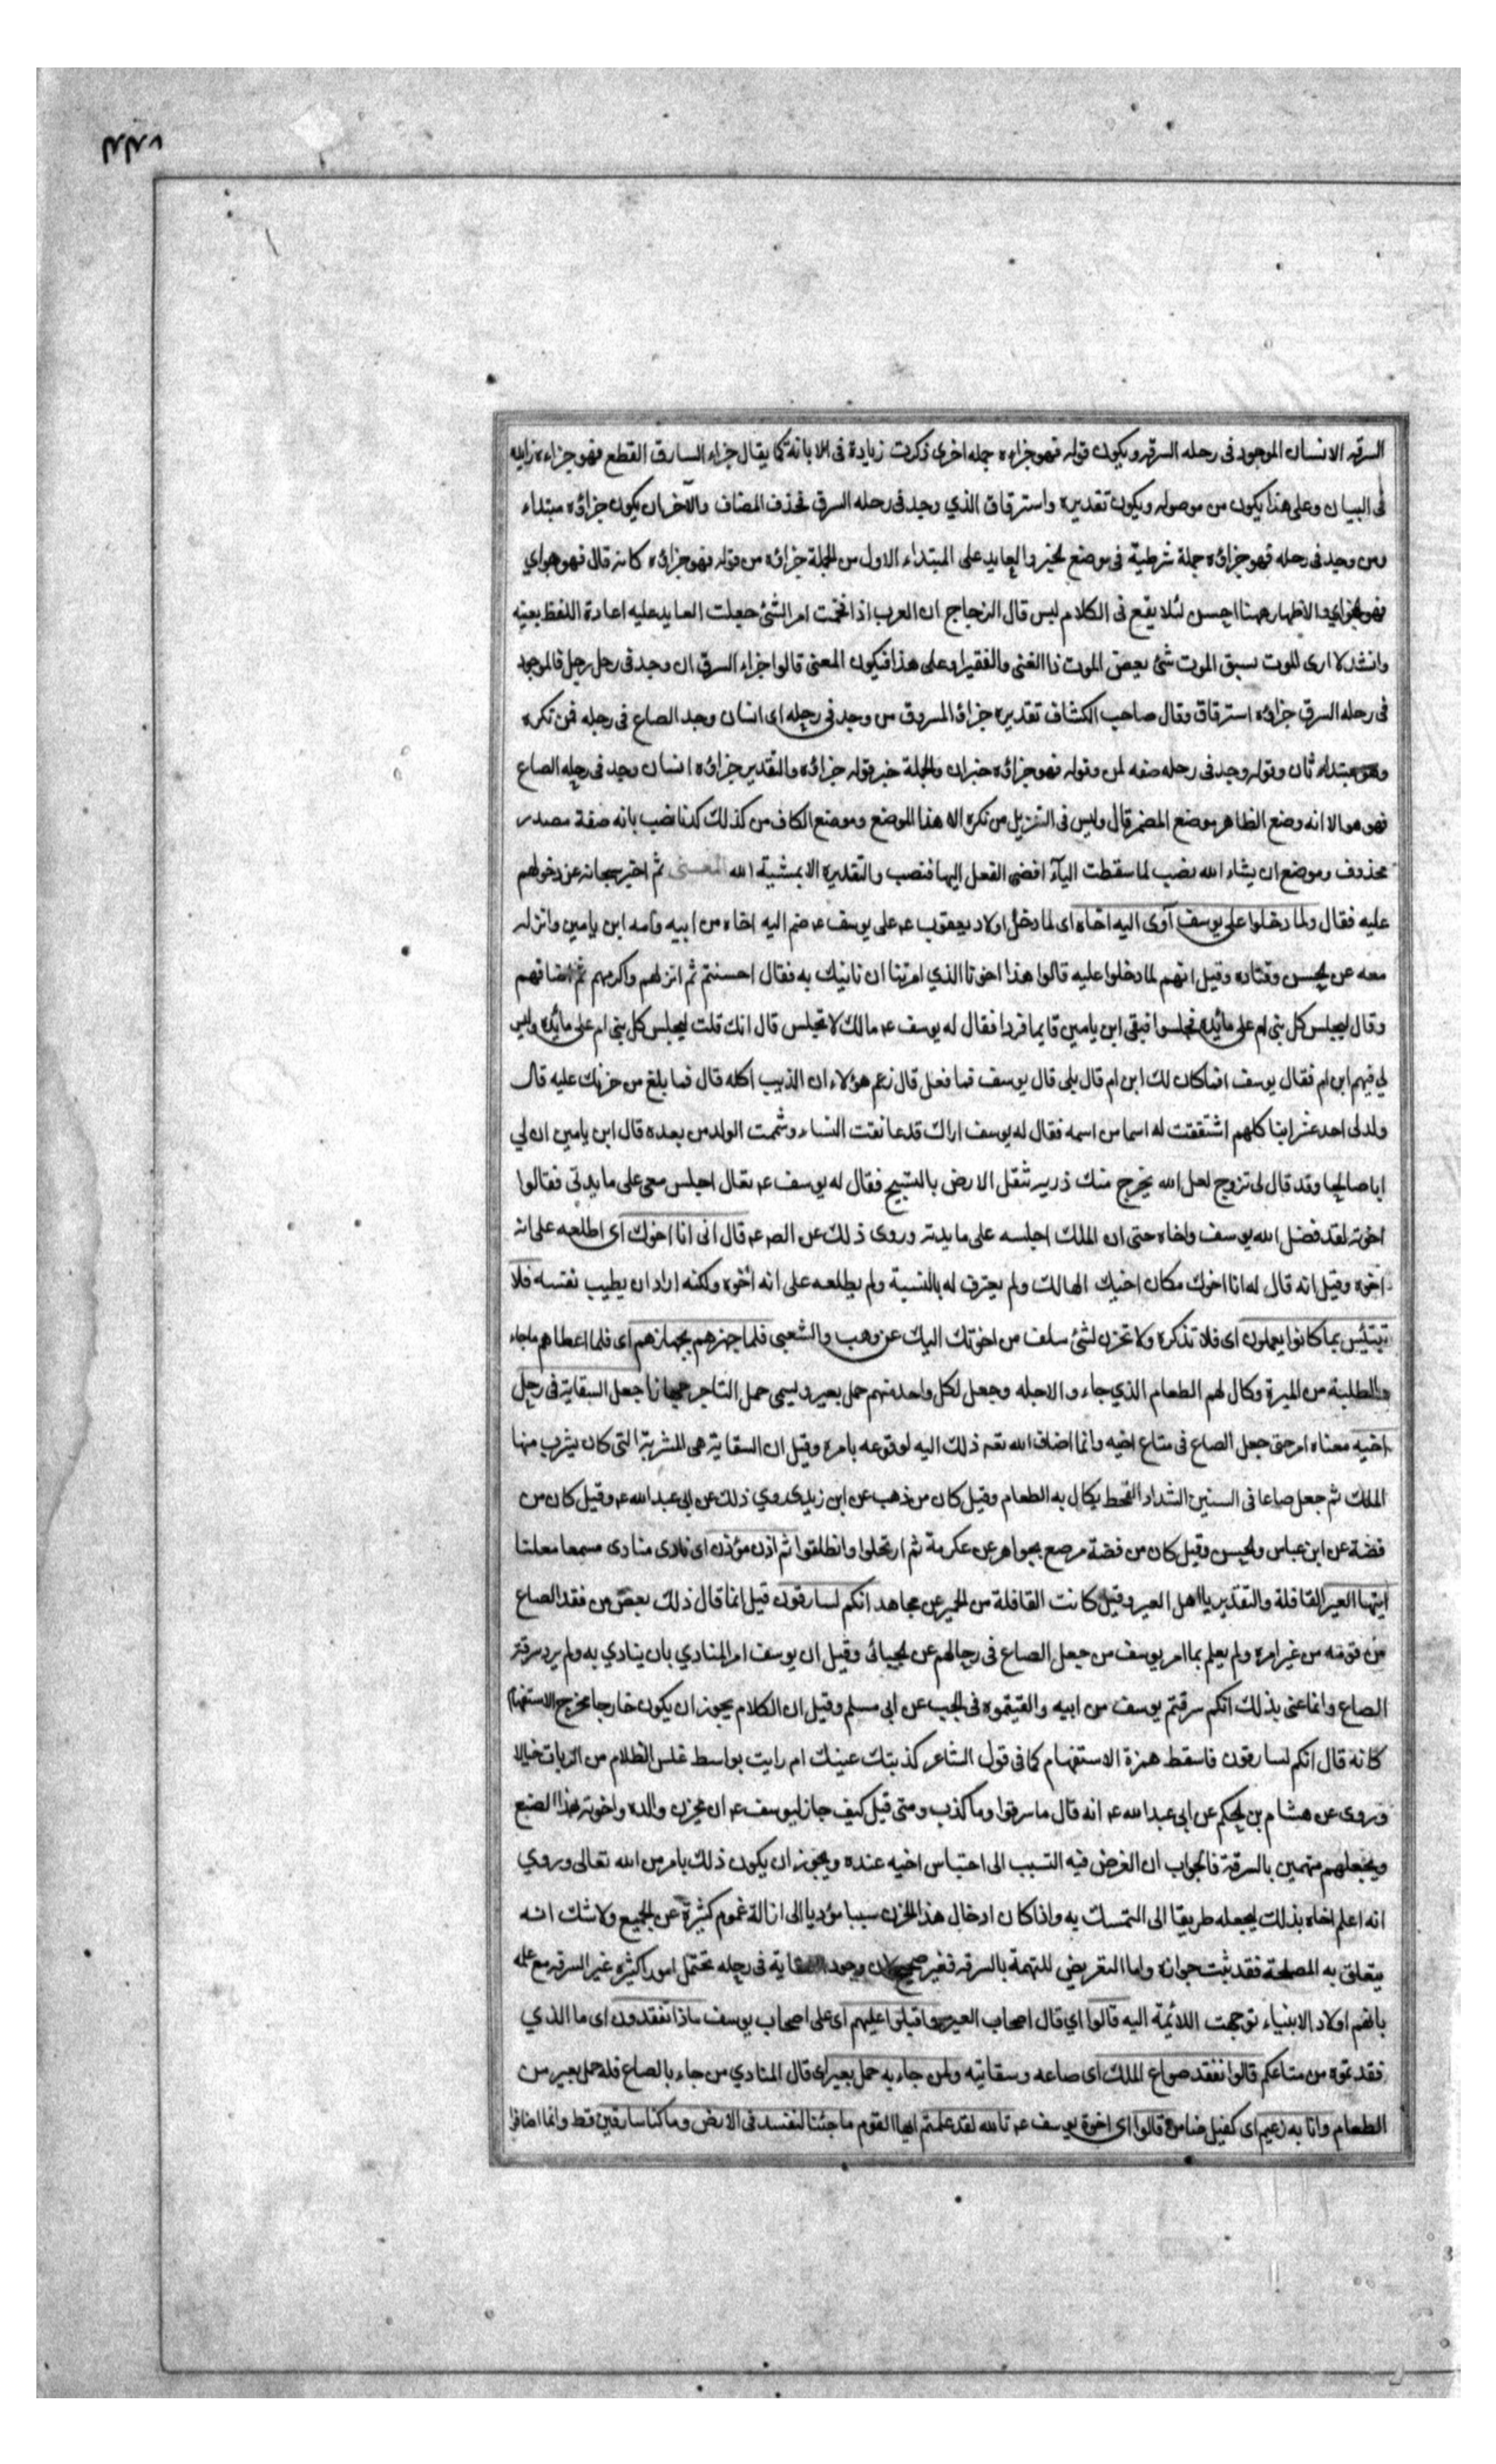 السرقه الانسان الموجود فى رحله السرقه ويكون قوله فهو جزاوه جمله اخرى ذكرت زيادة فى الابانة كما يقال جزاء السارق القطع فهو جزاءه زيادة
فى البيان وعلى هذا يكون من موصوله ويكون تقديره واسترقاق الذي وجد فى رحله السرق فحذف المضاف والآخر ان يكون جزاؤه مبتداء
ومن وجد فى رحله فهو جزاؤه جملة شرطية فى موضع لخبر والعايد على المبتداء الاول من الجملة جزاؤه من قوله فهو جزاؤه كانه قال فهو هو اي
فهو الجزاء والاظهار ههنا احسن لئلا يقع فى الكلام لبس قال الزجاج ان العرب اذا فخمت امر الشئ جعلت العايد عليه اعادة اللفظ بعينه
وانشد لا ارى الموت يسبق الموت شئ بعض الموت ذا الغنى والفقيرا وعلى هذا فيكون المعنى قالوا جزاء السرق ان وجد فى رحل رجل فالموجود
فى رحله السرق جزاؤه استرقاق وقال صاحب الكشاف تقديره جزاؤ المسروق من وجد فى رحله اى انسان وجد الصاع فى رحله فمن نكره
وهو مبتداء ثان وقوله وجد فى رحله صفه لمن وقوله فهو جزاؤه خبران والجملة خبر قوله جزاؤه والتقدير جزاؤه انسان وجد فى رحله الصاع
فهو هو الا انه وضع الظاهر موضع المضمر قال وليس فى التنزيل من نكره الا هذا الموضع وموضع الكاف من كذلك كدنا نصب بانه صفة مصدر
محذوف وموضع ان يشاء الله نصب لما سقطت الباء افضى الفعل اليها فنصب والتقديره الا بمشية الله المعنى ثم اخبر سبحانه عن دخولهم
عليه فقال ولما دخلوا على يوسف آوى اليه اخاه اى لما دخل اولاد يعقوب ع على يوسف ع ضم اليه اخاه من ابيه وامه ابن يامين وانزله
معه عن لحسن وقتاده وقيل انهم لما دخلوا عليه قالوا هذا اخونا الذي امرتنا ان ناتيك به فقال احسنتم ثم انزلهم واكرمهم ثم اضافهم
وقال ليجلس كل بنى ام على مائدة فجلسوا فبقى ابن يامين قايما فردا فقال له يوسف ع مالك لا تجلس قال انك قلت ليجلس كل بنى ام على مائدة وليس
لي فيهم ابن ام فقال يوسف افما كان لك ابن ام قال بلى قال يوسف فما فعل قال زعم هؤلاء ان الذيب اكله قال فما بلغ من حزنك عليه قال
ولد لى احد عشر ابنا كلهم اشتققت له اسما من اسمه فقال له يوسف اراك قد عانقت النساء وشممت الولد من بعده قال ابن يامين ان لي
ابا صالحا وقد قال لى تزوج لعل الله يخرج منك ذريه تثقل الارض بالتسبيح فقال له يوسف ع تعال اجلس معى على مايدتى فقالوا
اخوته لقد فضل الله يوسف واخاه حتى ان الملك اجلسه على مايدته وروى ذلك عن الص ع قال انى انا اخوك اى اطلعه على انه
اخوه وقيل انه قال له انا اخوك مكان اخيك الهالك ولم يعترف له بالنسبة ولم يطلعه على انه اخوه ولكنه اراد ان يطيب نفسه فلا
تبتئس بما كانوا يعملون اى فلا تذكره ولا تحزن لشئ سلف من اخوتك اليك عن وهب والشعبى فلما جهزهم بجهازهم اى فلما اعطاهم ما جاء
والطلبة من الميرة وكال لهم الطعام الذي جاءوا لاجله وجعل لكل واحد منهم حمل بعير ويسمى حمل التاجر جهازا جعل السقاية فى رحل
اخيه معناه امر حتى جعل الصاع فى متاع اخيه وانما اضاف الله تعه ذلك اليه لوقوعه بامره وقيل ان السقاية هى المشربة التى كان يشرب منها
الملك ثم جعل صاعا فى السنين الشداد القحط يكال به الطعام وقيل كان من ذهب عن ابن زيد وروي ذلك عن ابي عبد الله ع وقيل كان من
فضة عن ابن عباس ولحسن وقيل كان من فضة مرصع بجواهر عن عكرمة ثم ارتحلوا وانطلقوا ثم اذن مؤذن اى نادى منادى مسمعا معلنا
ايتها العير القافلة والتقدير يا اهل العير وقيل كانت القافلة من الحمير عن مجاهد انكم لسارقون قيل انما قال ذلك بعض من فقد الصاع
من قومه من غير امره ولم يعلم بما امر يوسف من جعل الصاع فى رحالهم عن لجبائى وقيل ان يوسف امر المنادي بان ينادي به ولم يرد سرقة
الصاع وانما عنى بذلك انكم سرقتم يوسف من ابيه والقيتموه فى لجب عن ابى مسلم وقيل ان الكلام يجوز ان يكون خارجا مخرج الاستفهام
كانه قال انكم لسارقون فاسقط همزة الاستفهام كما فى قول الشاعر كذبتك عينك ام رايت بواسط غلس الظلام من الرباب خيالا
وروى عن هشام بن لحكم عن ابى عبد الله ع انه قال ما سرقوا وما كذب ومتى قيل كيف جاز ليوسف ع ان يحزن والده واخوته هذا الصنع
ويجعلهم متهمين بالسرقة فالجواب ان الغرض فيه التسبب الى احتباس اخيه عنده ويجوز ان يكون ذلك بامر من الله تعالى وروي
انه اعلم اخاه بذلك ليجعله طريقا الى التمسك به واذا كان ادخال هذا الحزن سببا مؤديا الى ازالة غموم كثيرة عن لجميع ولا شك انه
يتعلق به المصلحة فقد ثبت جوازه واما التعريض للتهمة بالسرقه فغير صحيح لان وجود السقاية فى رحله تحتمل امورا كثيره غير السرقه مع علمه
بانهم اولاد الانبياء توجهت اللائمة اليه قالوا اي قال اصحاب العير واقبلوا عليهم اى على اصحاب يوسف ماذا تفقدون اى ما الذي
فقدتموه من متاعكم قالوا نفقد صواع الملك اى صاعه وسقايته ولمن جاء به حمل بعير اى قال المنادي من جاء بالصاع فله حمل بعير من
الطعام وانا به زعيم اى كفيل ضامن قالوا اى اخوة يوسف ع تالله لقد علمتم ايها القوم ما جئنا لنفسد فى الارض وما كنا سارقين قط وانما اضافوا